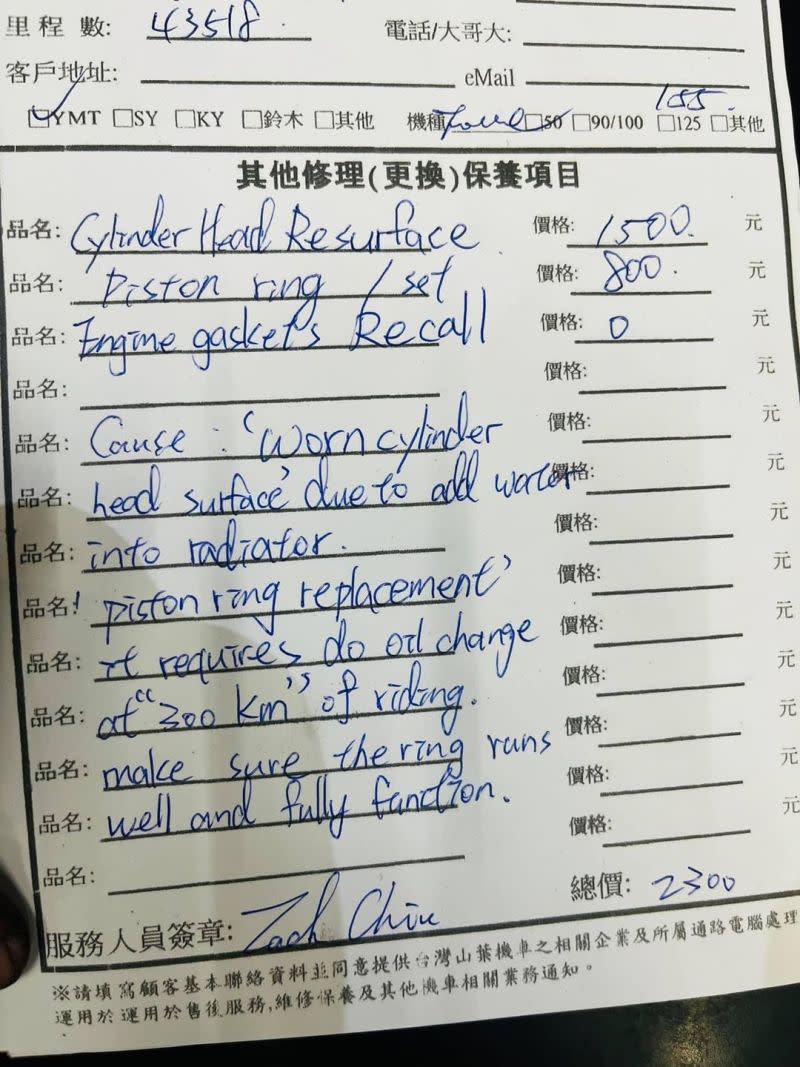 里程數: 43518.
電話/大哥大:
客戶地址:
eMail
☑YMT □SY □KY □鈴木 □其他 機種 Force □50 □90/100 □125 □其他 155.
其他修理(更換)保養項目
品名: Cylinder Head Resurface 價格: 1500. 元
品名: Piston ring 1 set 價格: 800. 元
品名: Engine gaskets Recall 價格: 0 元
品名: 價格: 元
品名: Cause: 'Worn cylinder 價格: 元
品名: head surface' due to add water 價格: 元
品名: into radiator. 價格: 元
品名: 'piston ring replacement' 價格: 元
品名: it requires do oil change 價格: 元
品名: at "300 km" of riding. 價格: 元
品名: make sure the ring runs 價格: 元
品名: well and fully function. 價格: 元
品名: 價格: 元
總價: 2300
服務人員簽章: Zach Chiu
※請填寫顧客基本聯絡資料並同意提供台灣山葉機車之相關企業及所屬通路電腦處理
運用於運用於售後服務,維修保養及其他機車相關業務通知。